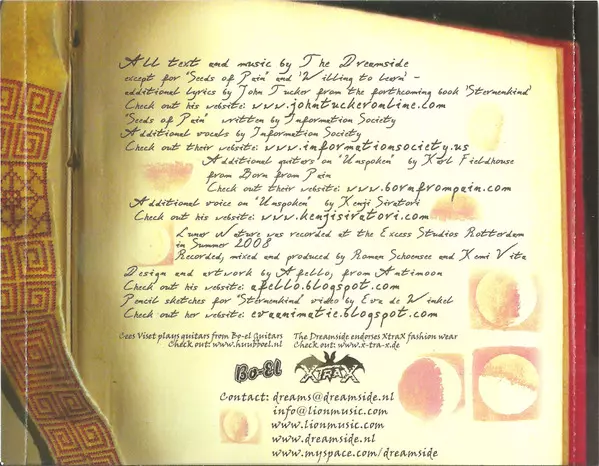 All text and music by The Dreamside
except for "Seeds of Pain" and 'Willing to learn' -
additional lyrics by John Tucker from the forthcoming book 'Sternenkind'
Check out his website: www.johntuckeronline.com
"Seeds of Pain" written by Information Society
Additional vocals by Information Society
Check out their website: www.informationsociety.us
Additional guitars on "Unspoken" by Karl Fieldhouse
from Born from Pain
Check out their website: www.bornfrompain.com
Additional voice on "Unspoken" by Kenji Siratori
Check out his website: www.kenjisiratori.com
Lunar Nature was recorded at the Excess Studios Rotterdam
in Summer 2008
Recorded, mixed and produced by Roman Schoensee and Kemi Vita
Design and artwork by Afello, from Antimoon
Check out his website: afello.blogspot.com
Pencil sketches for 'Sternenkind' video by Eva de Winkel
Check out her website: evaanimatie.blogspot.com
Cees Viset plays guitars from Bo-el Guitars
Check out: www.huubboel.nl
The Dreamside endorses XtraX fashion wear
Check out: www.x-tra-x.de
Bo-El
XTRAX
Contact: dreams@dreamside.nl
info@lionmusic.com
www.lionmusic.com
www.dreamside.nl
www.myspace.com/dreamside